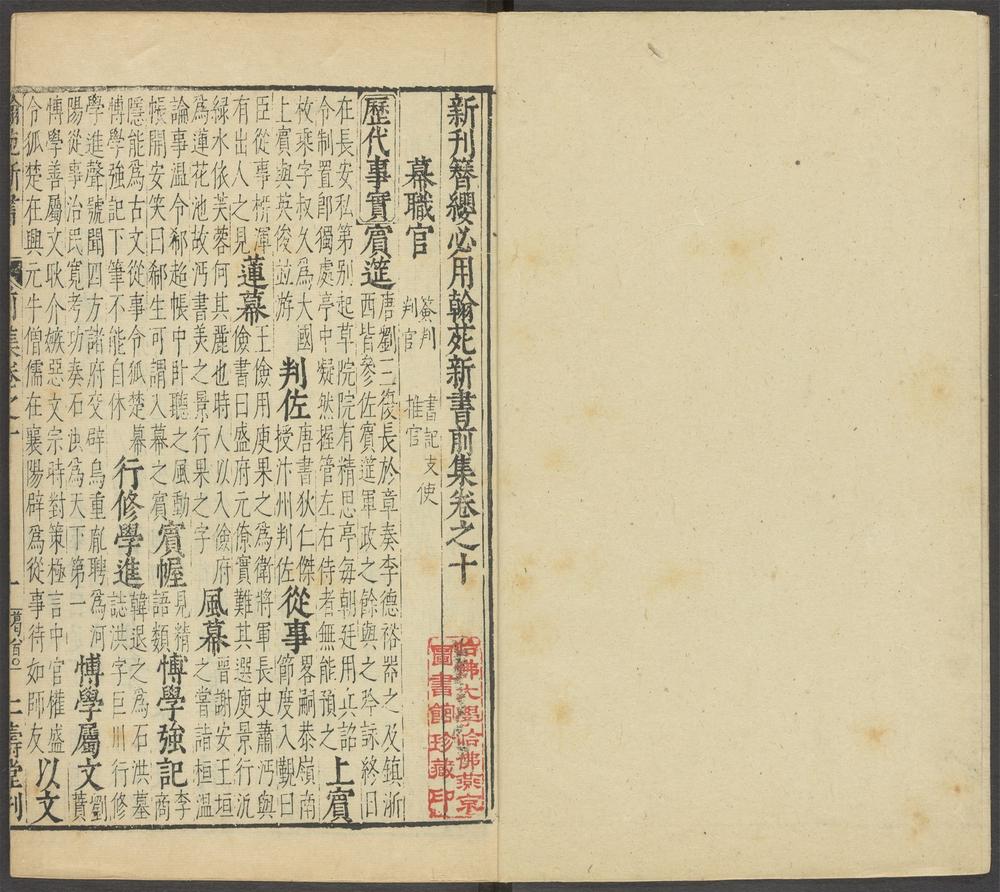 新刊簪纓必用翰苑新書前集卷之十
幕職官
簽判 書記 支使
判官 推官
歷代事實
賓筵 唐劉三復長於章奏李德裕器之及鎮浙
西皆參佐賓筵軍政之餘與之吟詠終日
在長安私第別起草院院有精思亭每朝廷用兵詔
令制置郎獨處亭中凝然握管左右侍者無能預之
上賓
枚乘字叔久為大國
上賓與英俊並游
判佐 唐書狄仁傑
授汴州判佐
從事 畧嗣恭嶺南
節度入覲曰
臣從事
有出人之見
蓮幕 王儉用庾果之為衛將軍長史蕭沔與
儉書曰盛府元僚實難其選庾景行泛
綠水依芙蓉何其麗也時人以入儉府
為蓮花池故沔書美之景行果之字
風幕 晉謝安王垣
之嘗詣桓溫
論事溫令郗超帳中卧聽之風動
帳開安笑曰郗生可謂入幕之賓
賓幄 見精
語類
博學強記 李商
隱能為古文從事令狐楚幕
博學強記下筆不能自休
行修學進 韓退之為石洪墓
誌洪字巨川行修
學進聲號聞四方諸府交辟烏重胤聘為河
陽從事治民寬考功奏石洪為天下第一
博學屬文 劉
蕡
博學善屬文耿介嫉惡文宗時對策極言中官權盛
令狐楚在興元牛僧儒在襄陽辟為從事待如師友
以文
翰苑新書 前集卷之十 一 仁壽堂刊
哈佛大學哈佛燕京
圖書館珍藏印